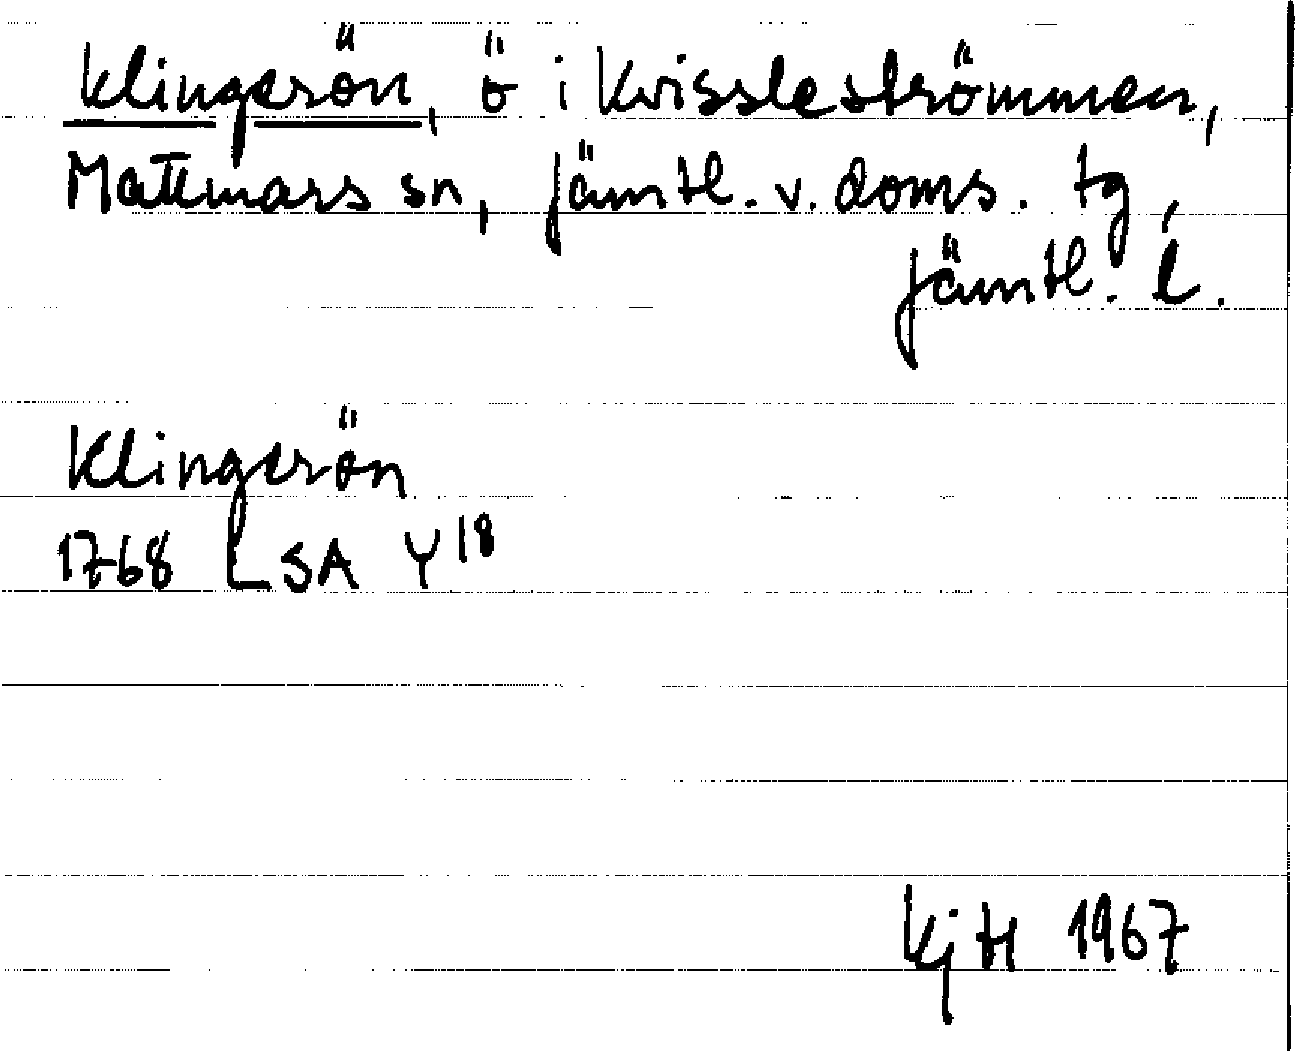 Klingerön, ö i Kvissleströmmen,
Mattmars sn, Jämtl. v. doms. tg,
Jämtl. l.
Klingerön
1768 LSA Y18
KjH 1967